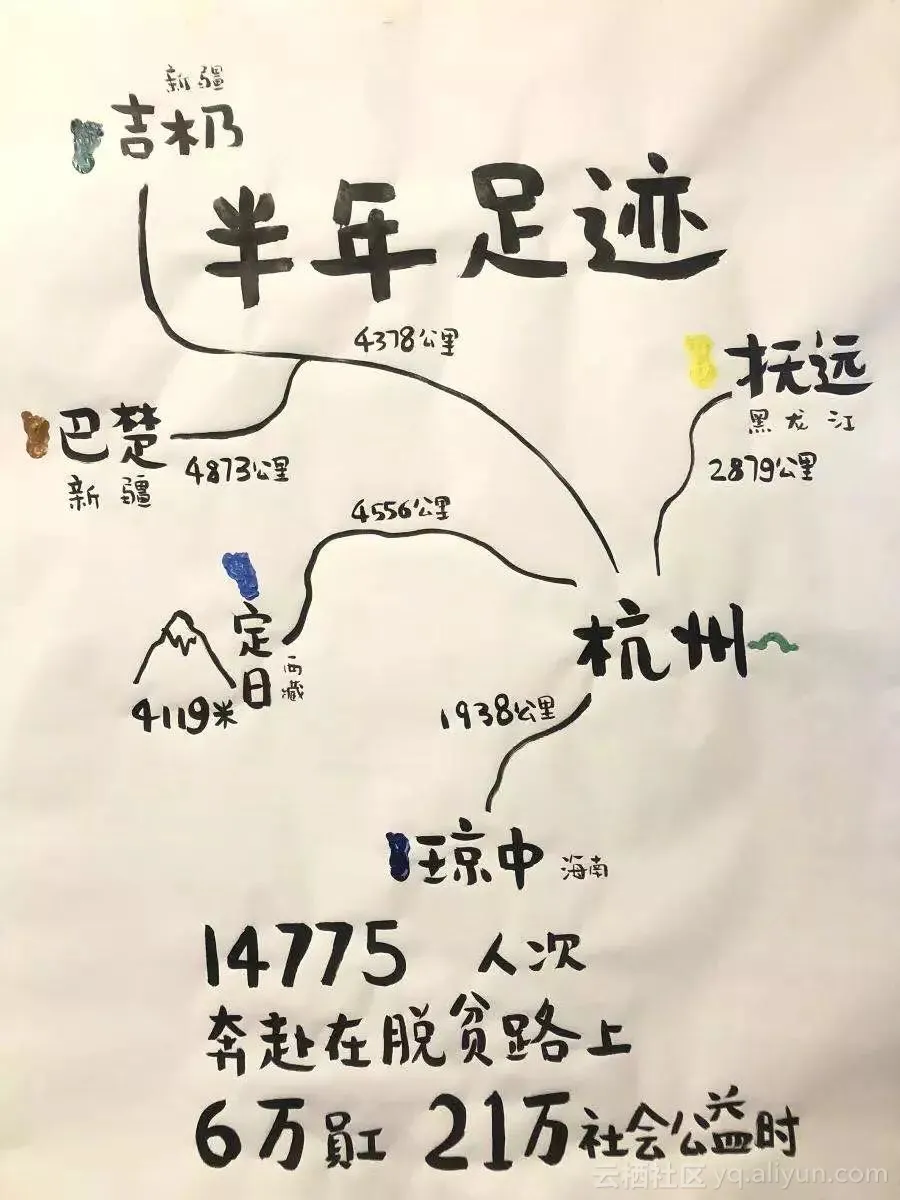 新疆
吉木乃
半年足迹
4378公里
抚远
黑龙江
2879公里
巴楚
新疆
4873公里
4556公里
定日
西藏
4119米
杭州
1938公里
琼中
海南
14775 人次
奔赴在脱贫路上
6万員工 21万社会公益时
云栖社区 yq.aliyun.com